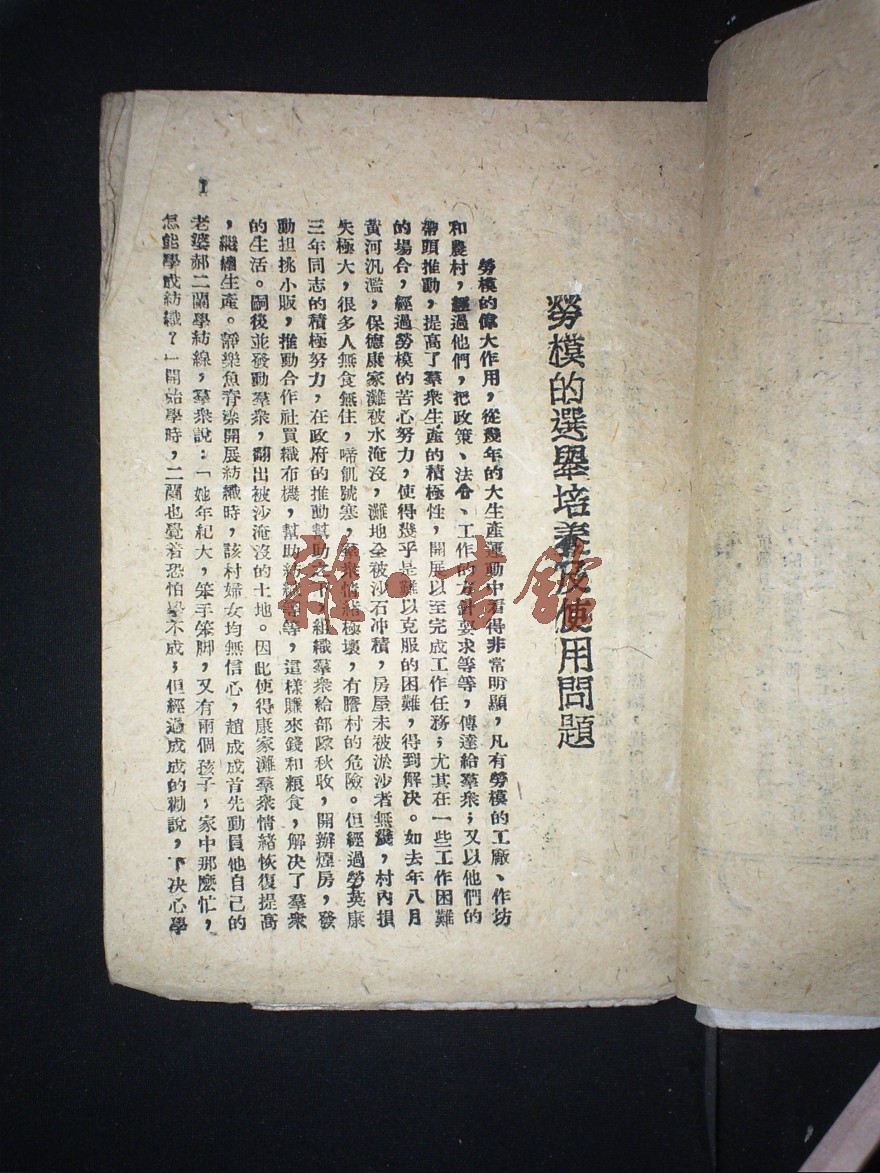 勞模的選舉培養及使用問題
勞模的偉大作用，從幾年的大生產運動中看得非常明顯，凡有勞模的工廠、作坊
和農村，經過他們，把政策、法令、工作的方針要求等等，傳達給羣衆；又以他們的
帶頭推動，提高了羣衆生產的積極性，開展以至完成工作任務；尤其在一些工作困難
的場合，經過勞模的苦心努力，使得幾乎是難以克服的困難，得到解决。如去年八月
黃河汎濫，保德康家灘被水淹沒，灘地全被沙石冲積，房屋未被淤沙者無幾，村內損
失極大，很多人無食無住，啼飢號寒，羣衆情緒極壞，有謄村的危險。但經過勞英康
三年同志的積極努力，在政府的推動幫助之下，組織羣衆給部隊秋收，開辦煙房，發
動担挑小販，推動合作社買織布機，幫助紡織等等，這樣賺來錢和粮食，解决了羣衆
的生活。嗣後並發動羣衆，翻出被沙淹沒的土地。因此使得康家灘羣衆情緒恢復提高
，繼續生產。靜樂魚脊梁開展紡織時，該村婦女均無信心，趙成成首先動員他自己的
老婆郝二蘭學紡線，羣衆說：「她年紀大，笨手笨脚，又有兩個孩子，家中那麼忙，
怎能學成紡織？」開始學時，二蘭也覺着恐怕學不成；但經過成成的勸說，下决心學
1
雜·書館